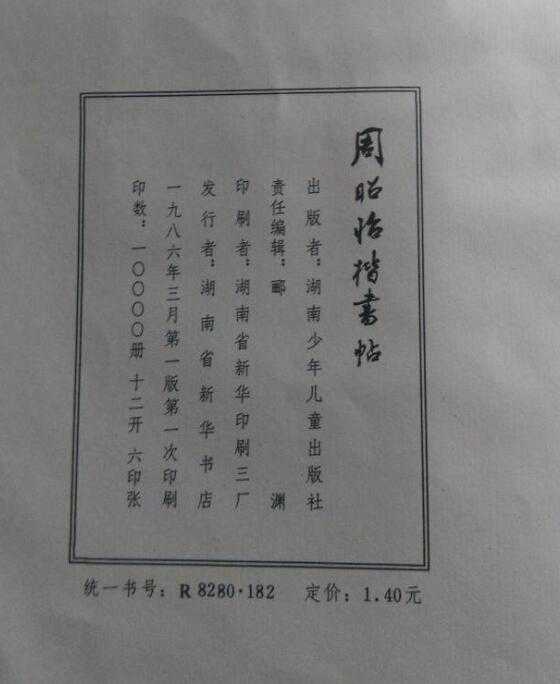 周昭怡楷书帖
出版者：湖南少年儿童出版社
责任编辑：郦 渊
印刷者：湖南省新华印刷三厂
发行者：湖南省新华书店
一九八六年三月第一版第一次印刷
印数：一〇〇〇〇册 十二开 六印张
统一书号：R 8280·182 定价：1.40元